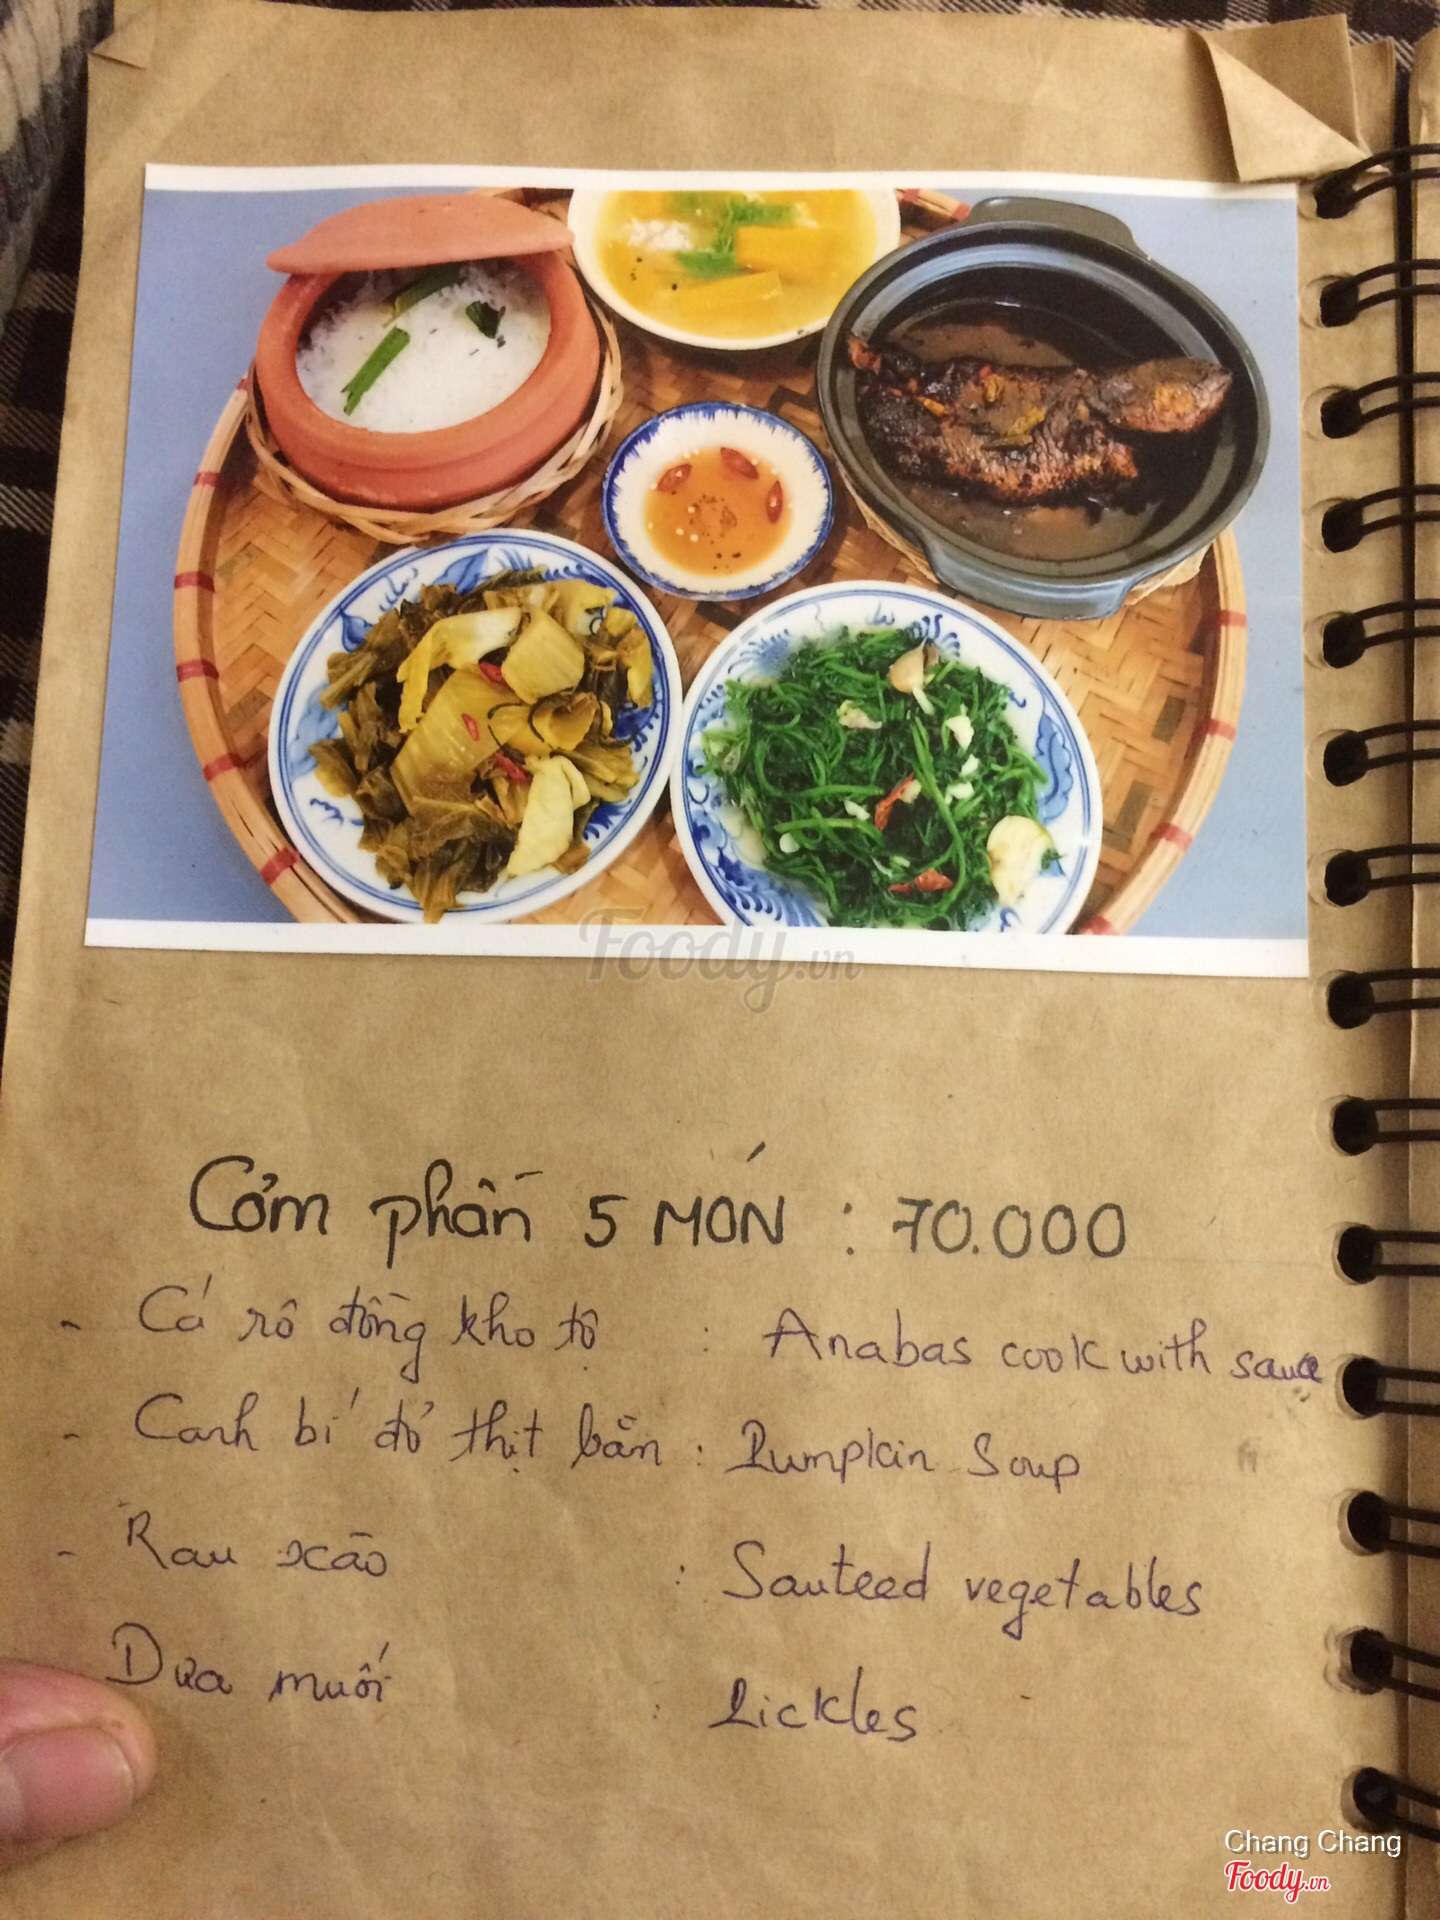 Foody.vn
Cơm phần 5 MÓN : 70.000
- Cá rô đồng kho tộ : Anabas cook with sauce
- Canh bí đỏ thịt bằm : Pumpkin Soup
- Rau xào : Sauteed vegetables
Dưa muối : Pickles
Chang Chang
Foody.vn